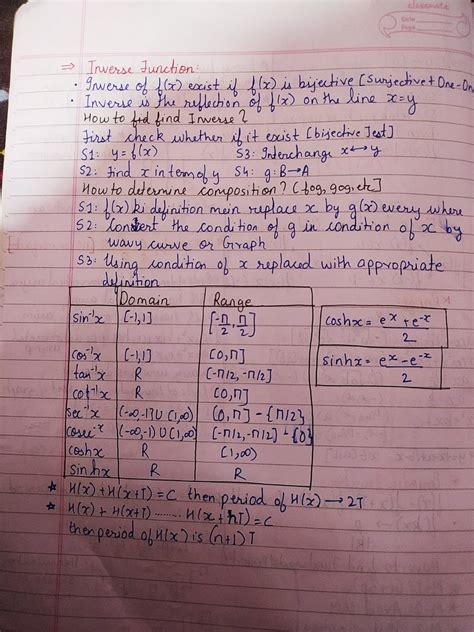 classmate
Date
Page
⇒ Inverse Function:
• Inverse of f(x) exist if f(x) is bijective [Surjective + One-One
• Inverse is the reflection of f(x) on the line x=y
How to find Inverse?
First check whether if it exist [bijective Test]
S1: y=f(x) S3: Interchange x↔y
S2: Find x in term of y S4: g:B→A
How to determine composition? (fog, gog, etc]
S1: f(x) ki definition mein replace x by g(x) every where
S2: Convert the condition of g in condition of x by
wavy curve or Graph
S3: Using condition of x replaced with appropriate
definition
Domain Range
sin⁻¹x [-1,1] [-π/2, π/2]
coshx = (e^x + e^-x)/2
cos⁻¹x [-1,1] [0,π]
sinhx = (e^x - e^-x)/2
tan⁻¹x R [-π/2, -π/2]
cot⁻¹x R [0,π]
sec⁻¹x (-∞,-1]U(1,∞) (0,π] - {π/2}
cosec⁻x (-∞,-1)U(1,∞) [-π/2,-π/2] - {0}
coshx R (1,∞)
sinhx R R
★ H(x)+H(x+T)=C then period of H(x) → 2T
★ H(x) + H(x+T) ........ H(x+nT)=C
then period of H(x) is (n+1)T